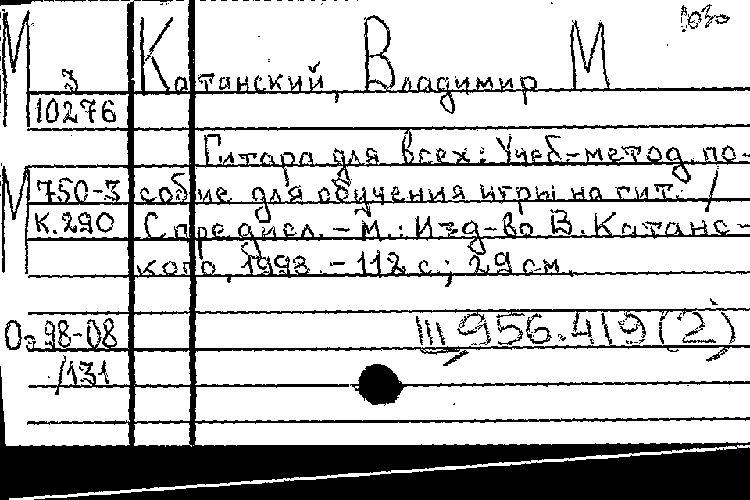 1030
М З Катанский, Владимир М
10276
Гитара для всех: Учеб-метод. по-
М 750-3 собие для обучения игры на гит. /
К.290 С предисл. - М.: Изд-во В. Катанс-
кого, 1998. - 112 с.; 29 см.
Оэ 98-08 Ш 956.419(2)
/131